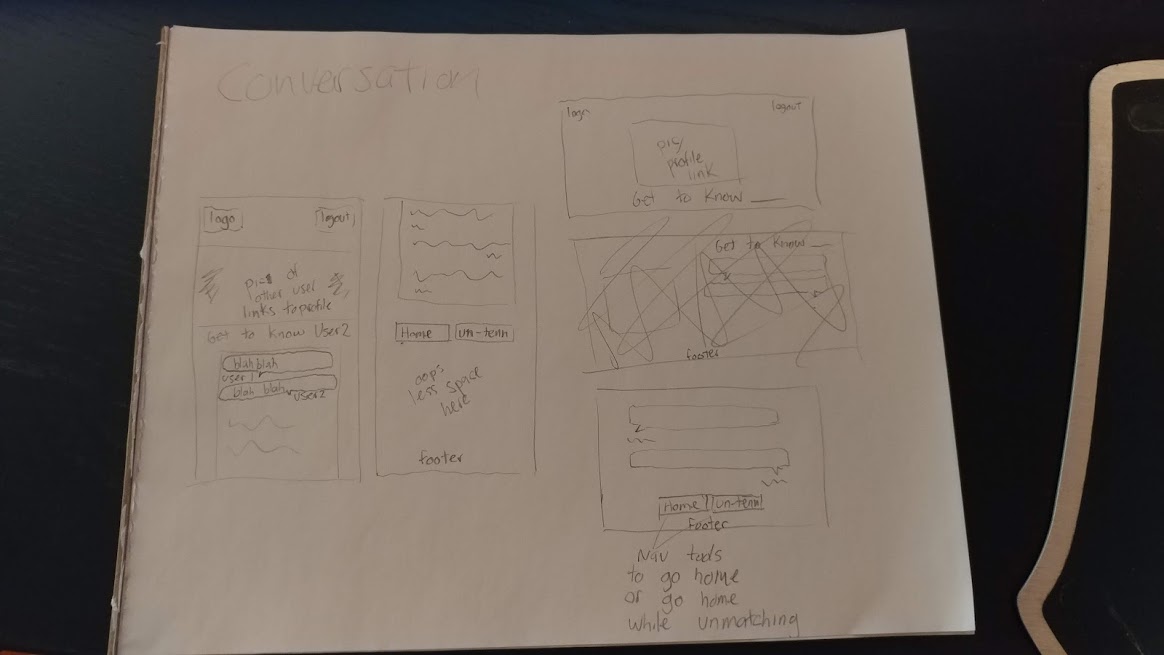 Conversation
logo
logout
pic of
other user
links to profile
Get to know User2
blah blah
user 1
blah blah
user2
Home
un-tenn
oops
less space
here
footer
logo
logout
pic/
profile
link
Get to know ___
Get to know __
footer
Home
un-tenn
Footer
Nav tools
to go home
or go home
while unmatching